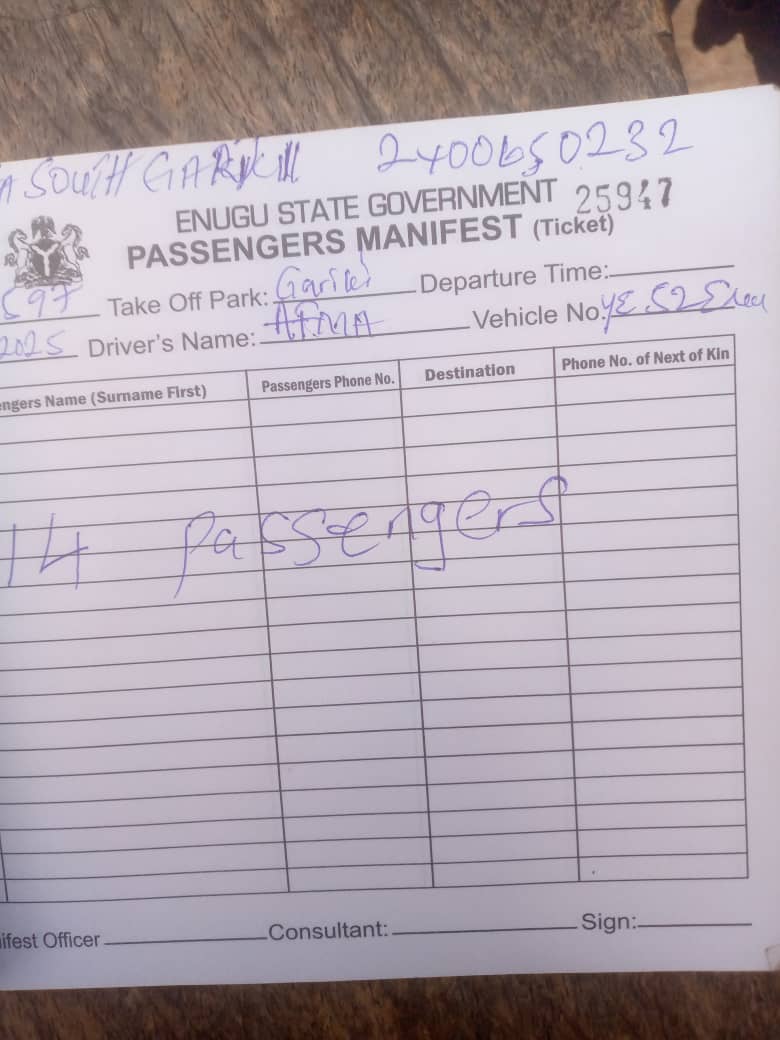 A SOUTH GARIKI 2400650232
ENUGU STATE GOVERNMENT 25947
PASSENGERS MANIFEST (Ticket)
597 Take Off Park: Gariki Departure Time:
2025 Driver's Name: Vehicle No.
engers Name (Surname First) Passengers Phone No. Destination Phone No. of Next of Kin
14 Passengers
ifest Officer Consultant: Sign: